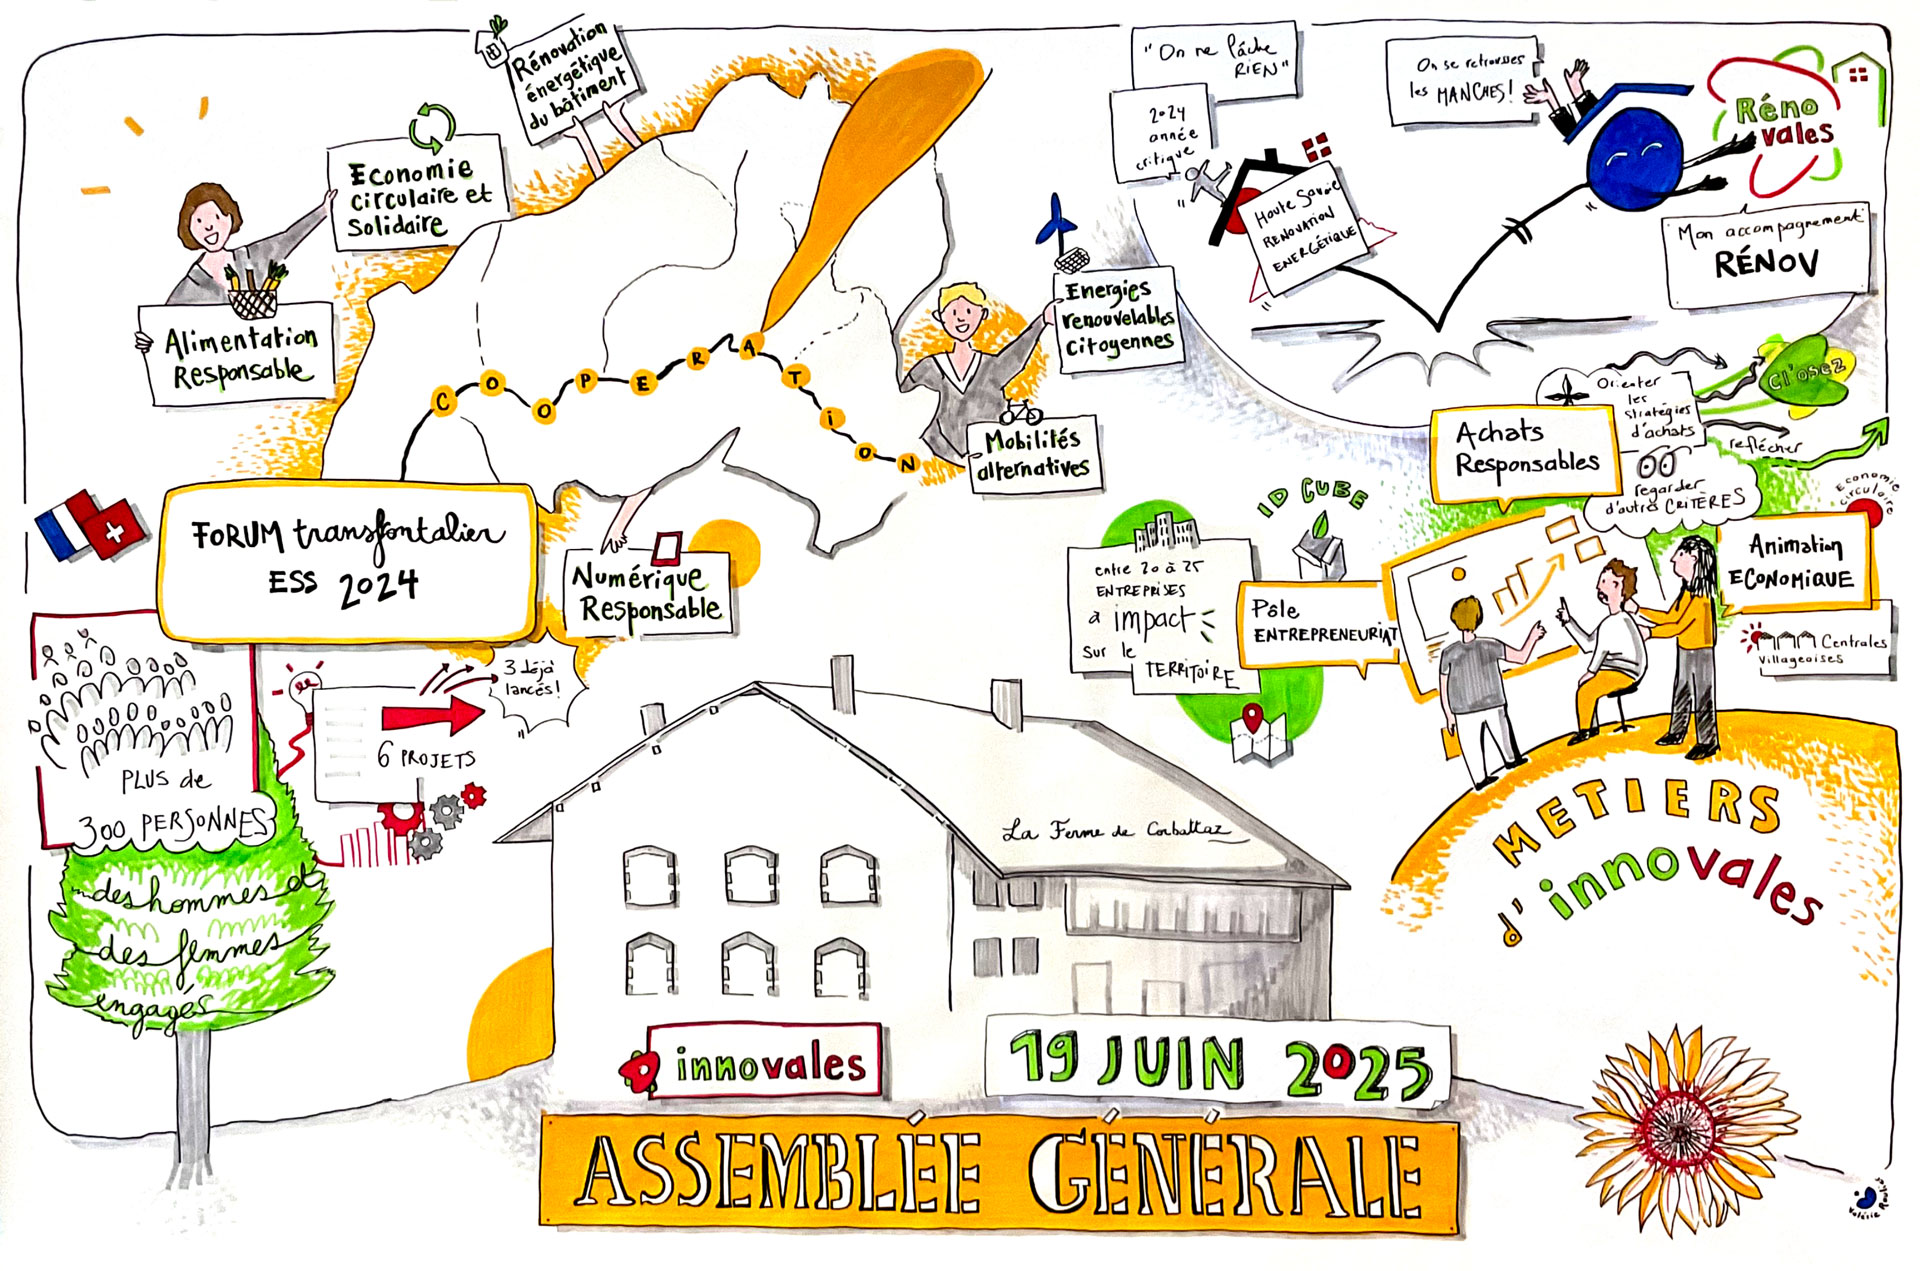 Rénovation
énergétique
du bâtiment
Economie
circulaire et
Solidaire
Alimentation
Responsable
COOPERATiON
Energies
renouvelables
citoyennes
Mobilités
alternatives
FORUM transfontalier
ESS 2024
Numérique
Responsable
PLUS de
300 PERSONNES
des hommes et
des femmes
engagés
6 PROJETS
3 déjà
lancés!
"On ne lâche
RIEN"
2024
année
critique
Haute Savoie
RENOVATION
ENERGÉTIQUE
On se retrousses
les MANCHES!
Réno
vales
Mon accompagnement
RÉNOV
Achats
Responsables
Orienter
les
stratégies
d'achats
Cl'osez
reflécher
regarder
d'autres CRITÈRES
Economie
circulaire
Animation
ECONOMIQUE
Centrales
Villageoises
ID CUBE
entre 20 à 25
ENTREPRISES
à impact
sur le
TERRITOIRE
Pôle
ENTREPRENEURIAT
METIERS
d'innovales
La Ferme de Corbattaz
innovales
19 JUIN 2025
ASSEMBLÉE GÉNÉRALE